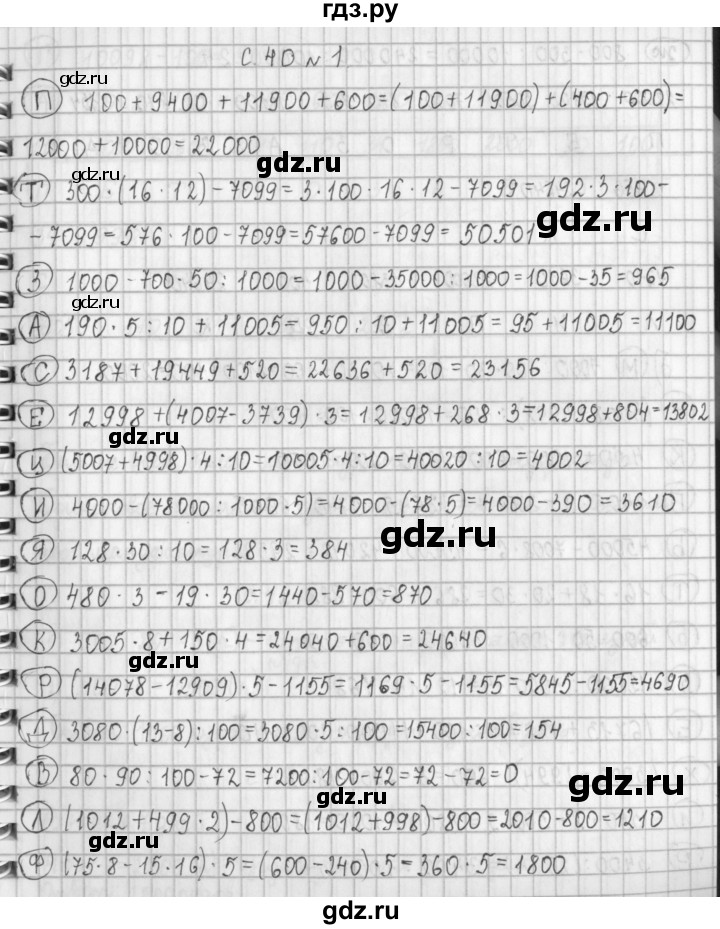 гдз.ру
С. 40 № 1
gdz.ru
П 100 + 9400 + 11900 + 600 = (100 + 11900) + (400 + 600) =
12000 + 10000 = 22000
gdz.ru
Т 300 · (16 · 12) - 7099 = 3 · 100 · 16 · 12 - 7099 = 192 · 3 · 100 -
- 7099 = 576 · 100 - 7099 = 57600 - 7099 = 50501
gdz.ru
З 1000 - 700 · 50 : 1000 = 1000 - 35000 : 1000 = 1000 - 35 = 965
gdz.ru
А 190 · 5 : 10 + 11005 = 950 : 10 + 11005 = 95 + 11005 = 11100
С 3187 + 19449 + 520 = 22636 + 520 = 23156
gdz.ru
Е 12998 + (4007 - 3739) · 3 = 12998 + 268 · 3 = 12998 + 804 = 13802
gdz.ru
Ц (5007 + 4998) · 4 : 10 = 10005 · 4 : 10 = 40020 : 10 = 4002
И 4000 - (78000 : 1000 · 5) = 4000 - (78 · 5) = 4000 - 390 = 3610
gdz.ru
Я 128 · 30 : 10 = 128 · 3 = 384
О 480 · 3 - 19 · 30 = 1440 - 570 = 870
К 3005 · 8 + 150 · 4 = 24040 + 600 = 24640
gdz.ru
Р (14078 - 12909) · 5 - 1155 = 1169 · 5 - 1155 = 5845 - 1155 = 4690
Д 3080 · (13 - 8) : 100 = 3080 · 5 : 100 = 15400 : 100 = 154
В 80 · 90 : 100 - 72 = 7200 : 100 - 72 = 72 - 72 = 0
gdz.ru
gdz.ru
Л (1012 + 499 · 2) - 800 = (1012 + 998) - 800 = 2010 - 800 = 1210
gdz.ru
Ф (75 · 8 - 15 · 16) · 5 = (600 - 240) · 5 = 360 · 5 = 1800
gdz.ru